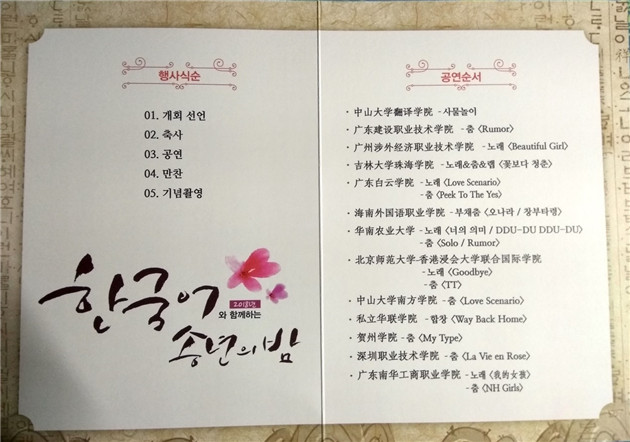 행사식순
01. 개회 선언
02. 축사
03. 공연
04. 만찬
05. 기념촬영
한국어
2018년
와 함께하는
송년의 밤
공연순서
· 中山大学翻译学院 - 사물놀이
· 广东建设职业技术学院 - 춤 〈Rumor〉
· 广州涉外经济职业技术学院 - 노래 〈Beautiful Girl〉
· 吉林大学珠海学院 - 노래&춤&랩 〈꽃보다 청춘〉
· 广东白云学院 - 노래 〈Love Scenario〉
- 춤 〈Peek To The Yes〉
· 海南外国语职业学院 - 부채춤 〈오나라 / 창부타령〉
· 华南农业大学 - 노래 〈너의 의미 / DDU-DU DDU-DU〉
- 춤 〈Solo / Rumor〉
· 北京师范大学-香港浸会大学联合国际学院
- 노래 〈Goodbye〉
- 춤 〈TT〉
· 中山大学南方学院 - 춤 〈Love Scenario〉
· 私立华联学院 - 합창 〈Way Back Home〉
· 贺州学院 - 춤 〈My Type〉
· 深圳职业技术学院 - 춤 〈La Vie en Rose〉
· 广东南华工商职业学院 - 노래 〈我的女孩〉
- 춤 〈NH Girls〉